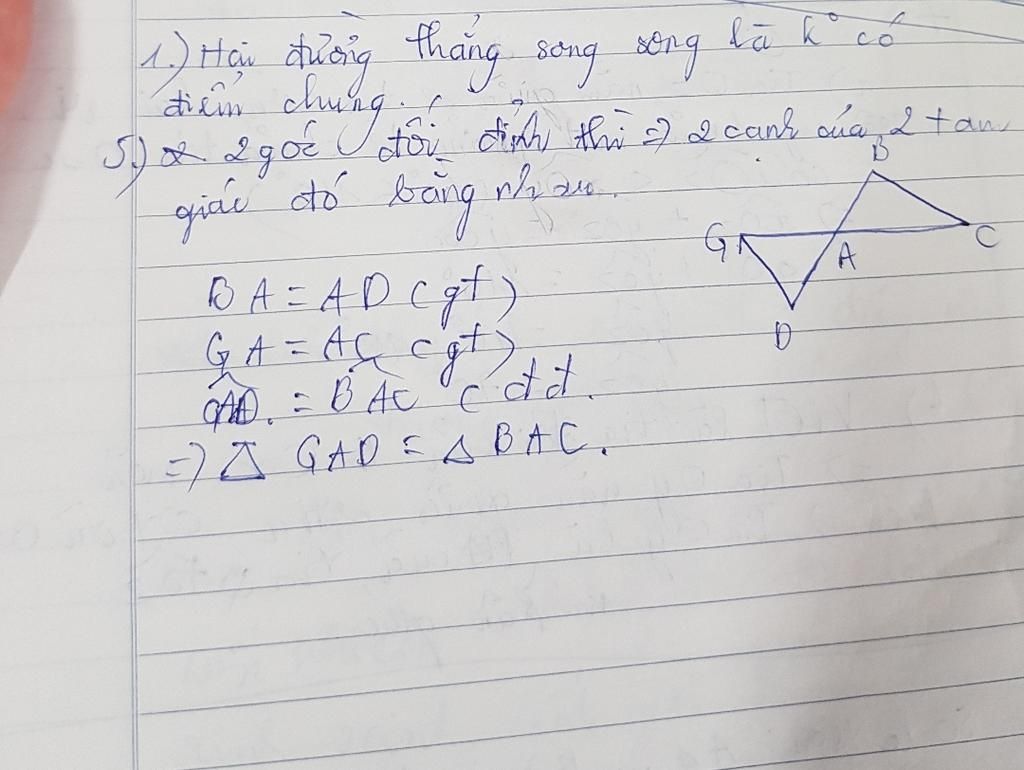 1.) Hai đường thẳng song song là k° có
điểm chung.
5.) 2 góc đối đỉnh thì => 2 cạnh của 2 tam
giác đó bằng nhau.
B
G
C
A
D
BA = AD (gt)
GA = AC (gt)
GAD = BAC (đđ.
=> Δ GAD = Δ BAC.